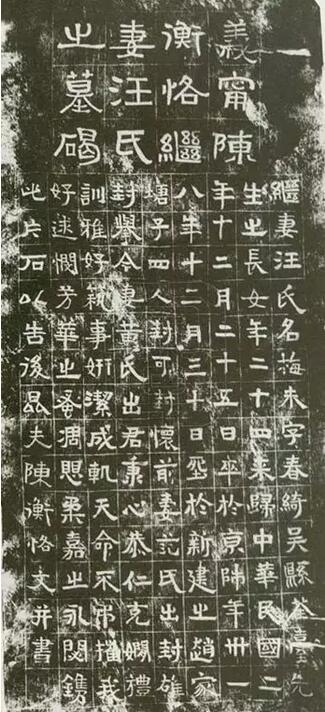 義甯陳
衡恪繼
妻汪氏
之墓碣
繼妻汪氏名梅未字春綺吳縣荃臺先
生之長女年二十四來歸中華民國二
年十二月二十五日卒於京師年卅一
八年十二月三十日窆於新建之趙家
塘子四人封可封懷前妻范氏出封雄
封舉今妻黃氏出君秉心恭仁克嫻禮
訓雅好蓺事姸潔成軌天命不弔摧我
好逑憫芳華之蚤凋思柔嘉之永閟鐫
此片石以告後昆夫陳衡恪文并書